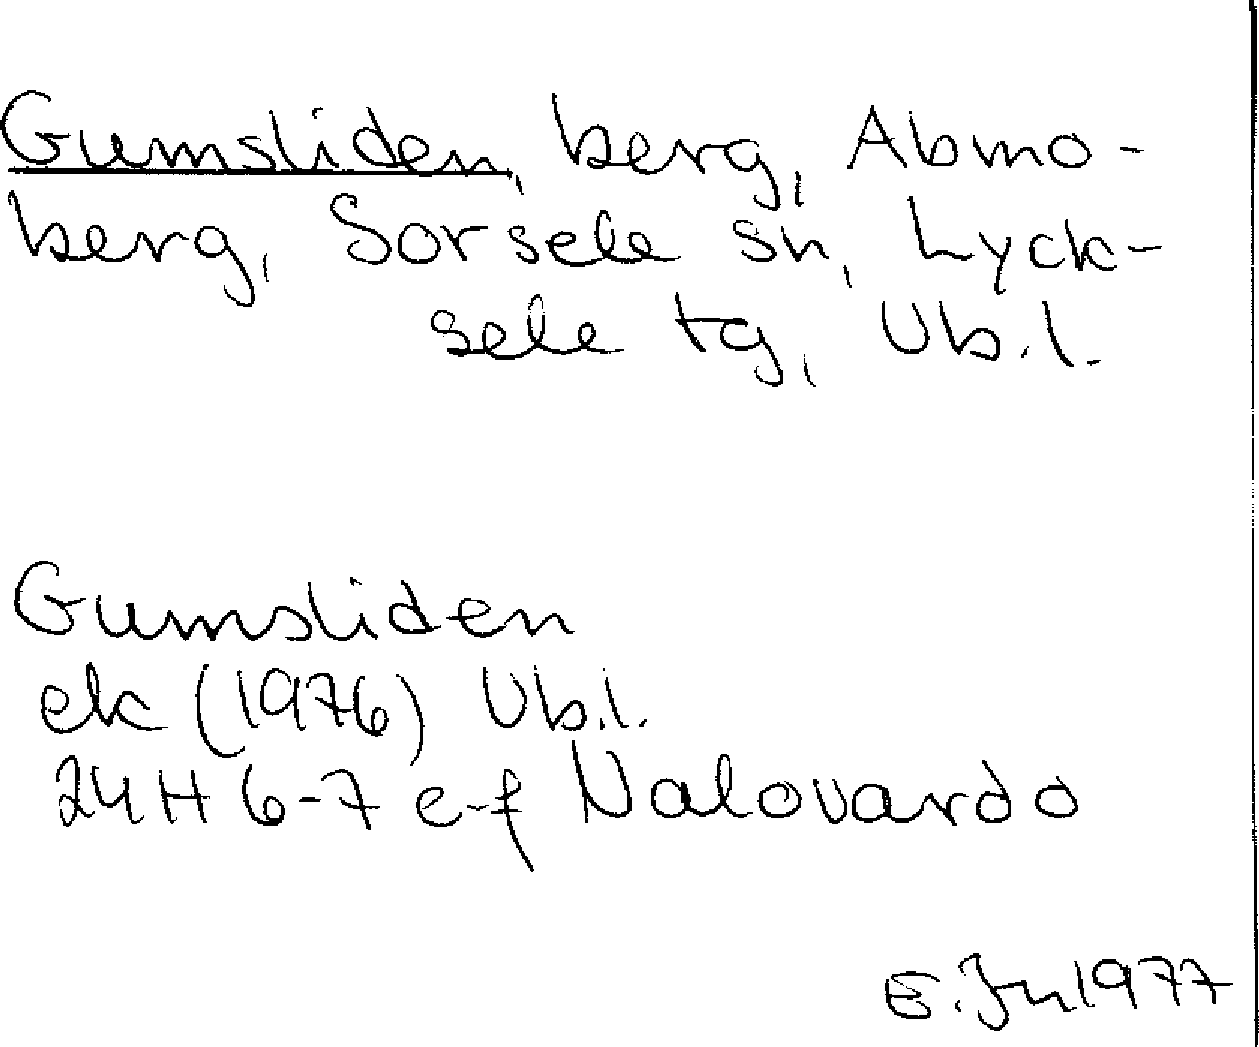 Gumsliden, berg, Abmo-
berg, Sorsele sn, Lyck-
sele tg, Vb.l.
Gumsliden
ek (1976) Vb.l.
24H 6-7 e-f Nalovardo
E. Jn 1977